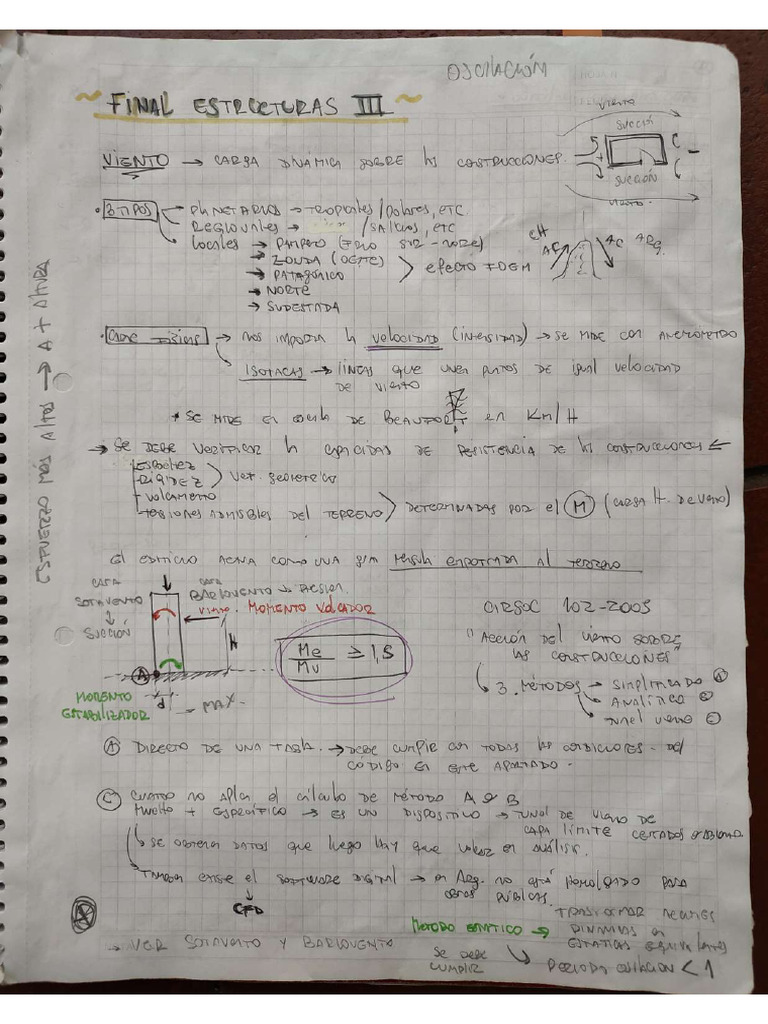 OSCILACIÓN
~ FINAL ESTRUCTURAS III ~
VIENTO → CARGA DINÁMICA SOBRE lAS COSTRUCCIONES.
VIENTO
SUCCIÓN
+
C -
SUCCIÓN
VIENTO
3 TIPOS → PLANETARIOS → TROPICALES / POLARES, ETC
REGIONALES → / SALICIOS, ETC
LOCALES → PAMPERO (FRIO SUR-)
→ ZONDA (OESTE)
→ PATAGÓNICO
> EFECTO FOEM
→ NORTE
→ SUDESTADA
CH
ARG.
→ NOS IMPORTA LA VELOCIDAD (INTENSIDAD) → SE MIDE CON ANEMÓMETRO
ISOTACAS → LÍNEAS QUE UNEN PUNTOS DE IGUAL VELOCIDAD
DE VIENTO
* SE MIDE EN ESCALA DE BEAUFORT en Km/H
ESFUERZO MÁS ALTOS → A + ALTURA
→ SE DEBE VERIFICAR LA CAPACIDAD DE RESISTENCIA DE LAS CONSTRUCCIONES ←
- ESBELTEZ
- RIGIDEZ
> VER. GEOMETRICA
- VOLCAMIENTO
- TENSIONES ADMISIBLES DEL TERRENO > DETERMINADAS POR EL M (CARGA H. DE VIENTO)
EL EDIFICIO ACTUA COMO UNA GRAN MENSULA EMPOTRADA AL TERRENO
CARA SOTAVENTO
↓
SUCCIÓN
CARA BARLOVENTO → PRESION.
VIENTO. MOMENTO VOLCADOR
H
A
d
MAX.
MOMENTO ESTABILIZADOR
Me/Mv ≥ 1,5
CIRSOC 102-2005
"ACCIÓN DEL VIENTO SOBRE
LAS CONSTRUCCIONES"
3. MÉTODOS → SIMPLIFICADO A
→ ANALÍTICO B
→ TUNEL VIENTO C
A DIRECTO DE UNA TABLA. → DEBE CUMPLIR CON TODAS LAS CONDICIONES DEL
CÓDIGO EN ESTE APARTADO.
C CUANDO NO APLICA EL CÁLCULO DE MÉTODO A o B
MUCHO + ESPECÍFICO → ES UN DISPOSITIVO → TUNEL DE VIENTO DE
CAPA LÍMITE
→ SE OBTIENEN DATOS QUE LUEGO HAY QUE VOLCAR EN ANÁLISIS.
→ TAMBIEN EXISTE EL SOFTWARE DIGITAL → EN ARG. NO ESTÁ HOMOLOGADO PARA
OBRAS PÚBLICAS.
↓
CFD
METODO ESTATICO → TRASFORMAR ACCIONES
DINAMICAS EN
ESTATICAS EQUIVALENTES
→ VER SOTAVENTO Y BARLOVENTO
SE DEBE
CUMPLIR
→ PERIODO OSCILACION < 1